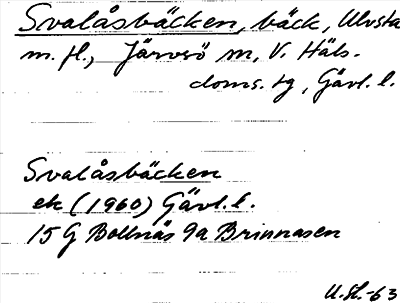 Svalåsbäcken, bäck, Ulvsta
m. fl., Järvsö sn, V. Häls-
doms. tg, Gävl. l.
Svalåsbäcken
ek (1960) Gävl. l.
15 G Bollnäs 9a Brinnåsen
U. Sk. -63